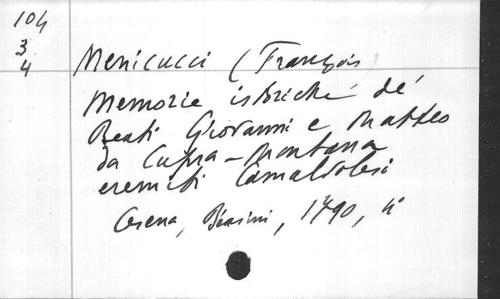 104
3
4
Menicucci (François)
Memorie istoriche de'
Beati Giovanni e Matteo
da Cupra-Montana
eremiti Camaldolesi
Cesena, Biasini, 1790, 4°